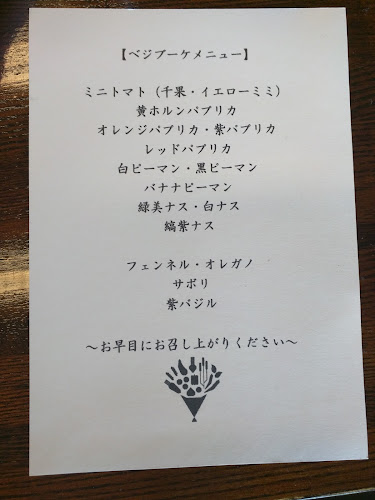 【ベジブーケメニュー】
ミニトマト（千果・イエローミミ）
黄ホルンパプリカ
オレンジパプリカ・紫パプリカ
レッドパプリカ
白ピーマン・黒ピーマン
バナナピーマン
緑美ナス・白ナス
縞紫ナス
フェンネル・オレガノ
サボリ
紫バジル
～お早目にお召し上がりください～